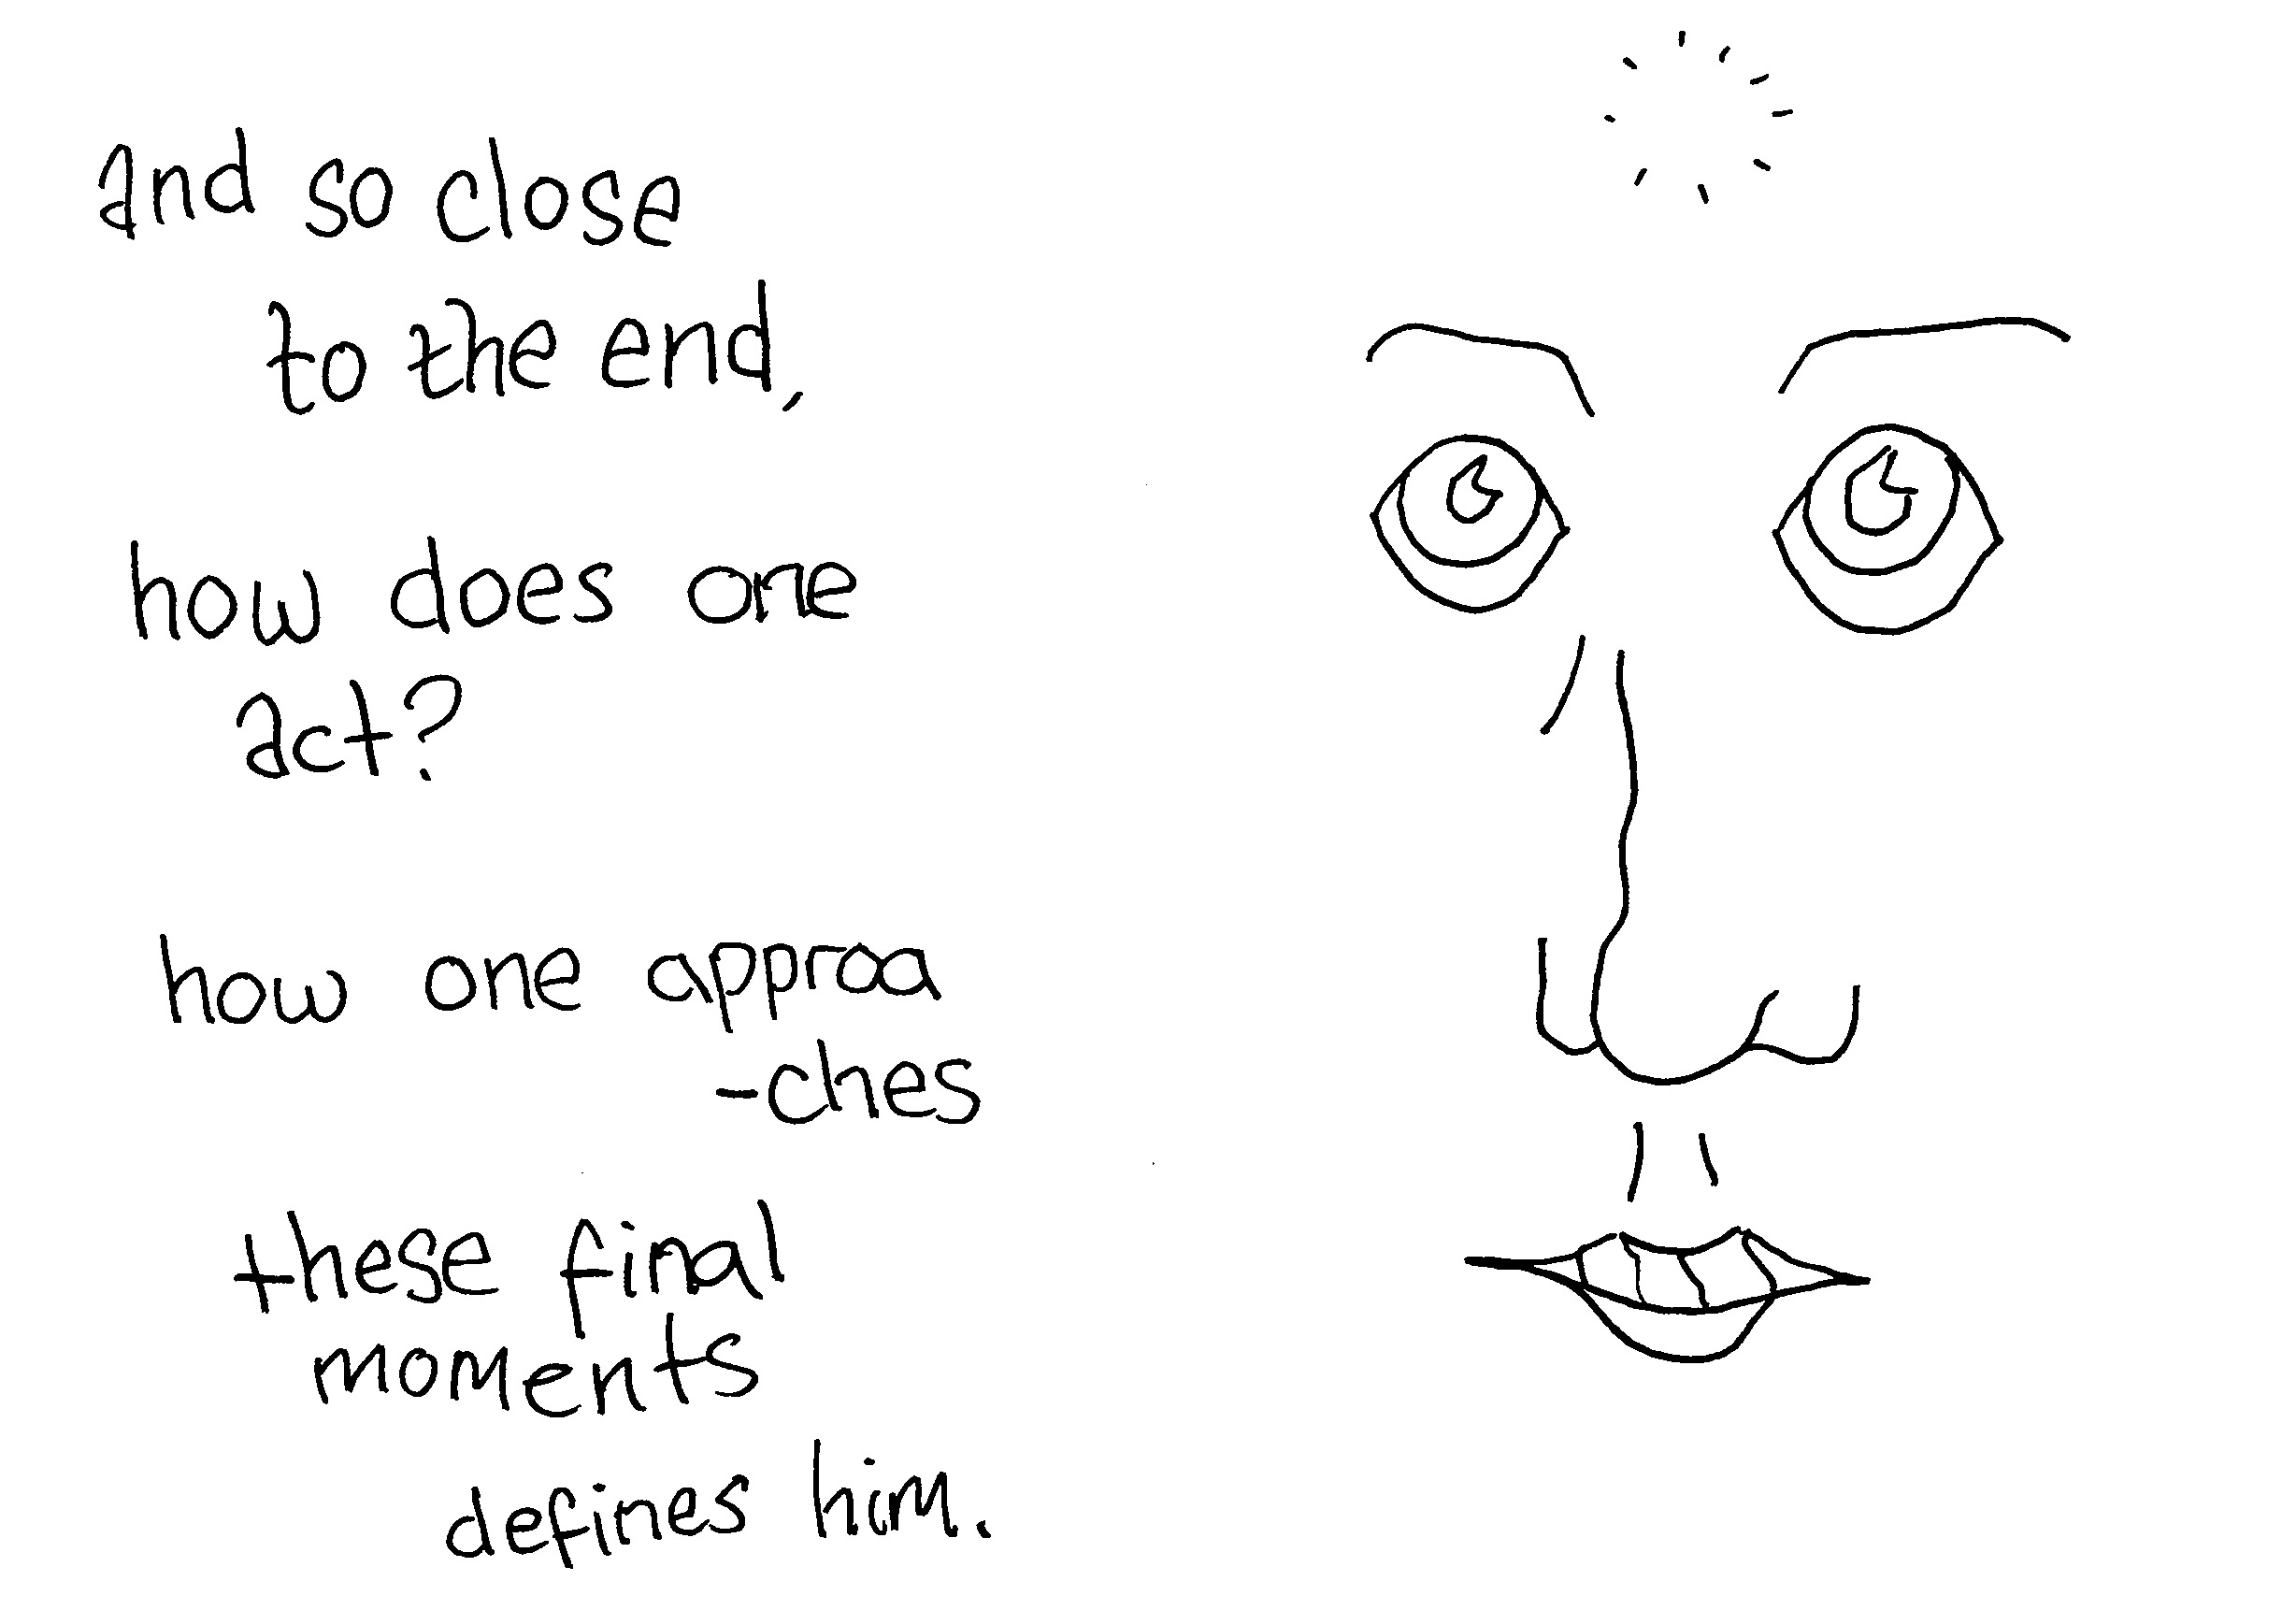 and so close
to the end,
how does one
act?
how one approa
-ches
these final
moments
defines him.